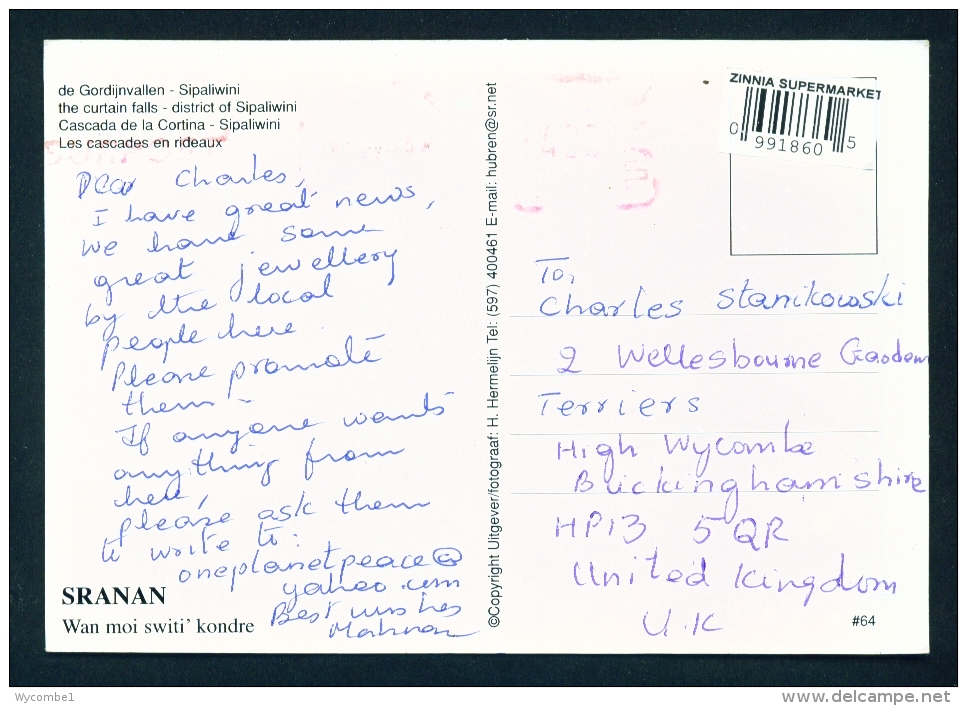 de Gordijnvallen - Sipaliwini
the curtain falls - district of Sipaliwini
Cascada de la Cortina - Sipaliwini
Les cascades en rideaux
Dear Charles,
I have great news,
we have some
great jewellery
by the local
people here
Please promote
them -
If anyone wants
anything from
here,
please ask them
to write to:
oneplanetpeace@
yahoo.com
Best wishes
SRANAN
Wan moi switi' kondre
©Copyright Uitgever/fotograaf: H. Hermelijn Tel: (597) 400461 E-mail: hubren@sr.net
ZINNIA SUPERMARKET
0 991860 5
To,
Charles Stanikowski
2 Wellesbourne Gardens
Terriers
High Wycombe
Buckinghamshire
HP13 5QR
United Kingdom
U.K
#64
Wycombe1
www.delcampe.net